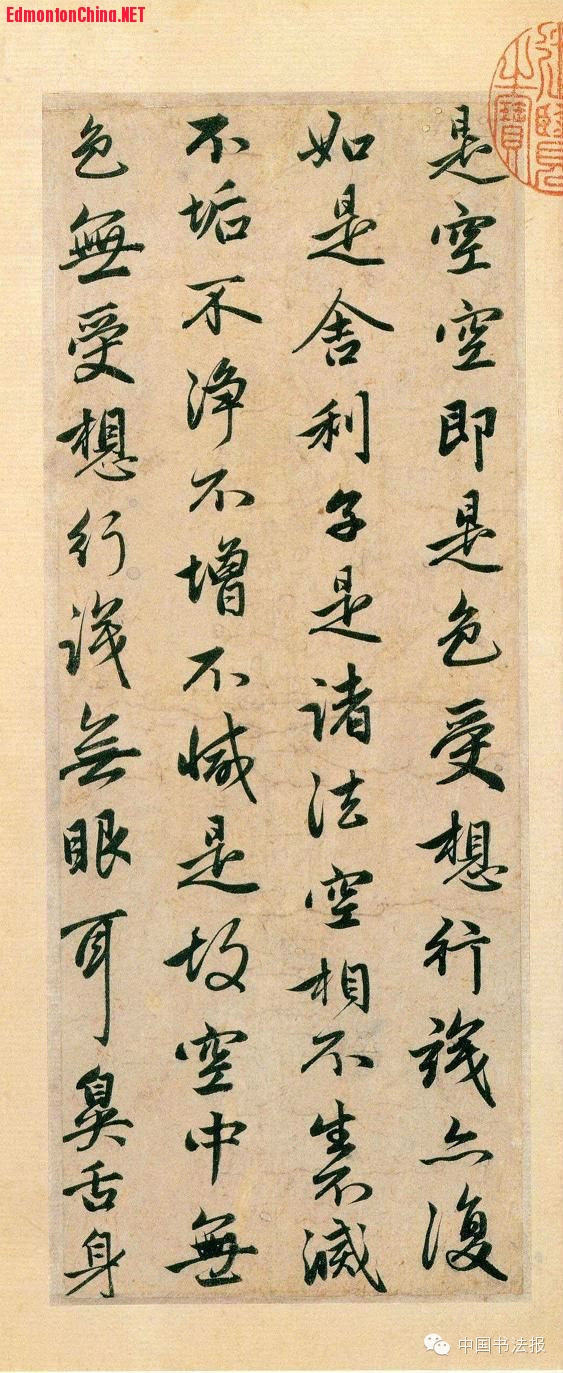 EdmontonChina.NET
是空空即是色受想行識亦復
如是舍利子是諸法空相不生不滅
不垢不淨不增不減是故空中無
色無受想行識無眼耳鼻舌身
中国书法报